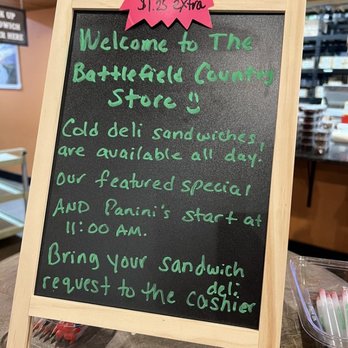 $1.25 extra
UP
WICH
HERE
Welcome to The
Battlefield Country
Store
Cold deli sandwiches,
are available all day.
Our featured special
AND Panini's start at
11:00 AM.
Bring your sandwich
deli
request to the cashier